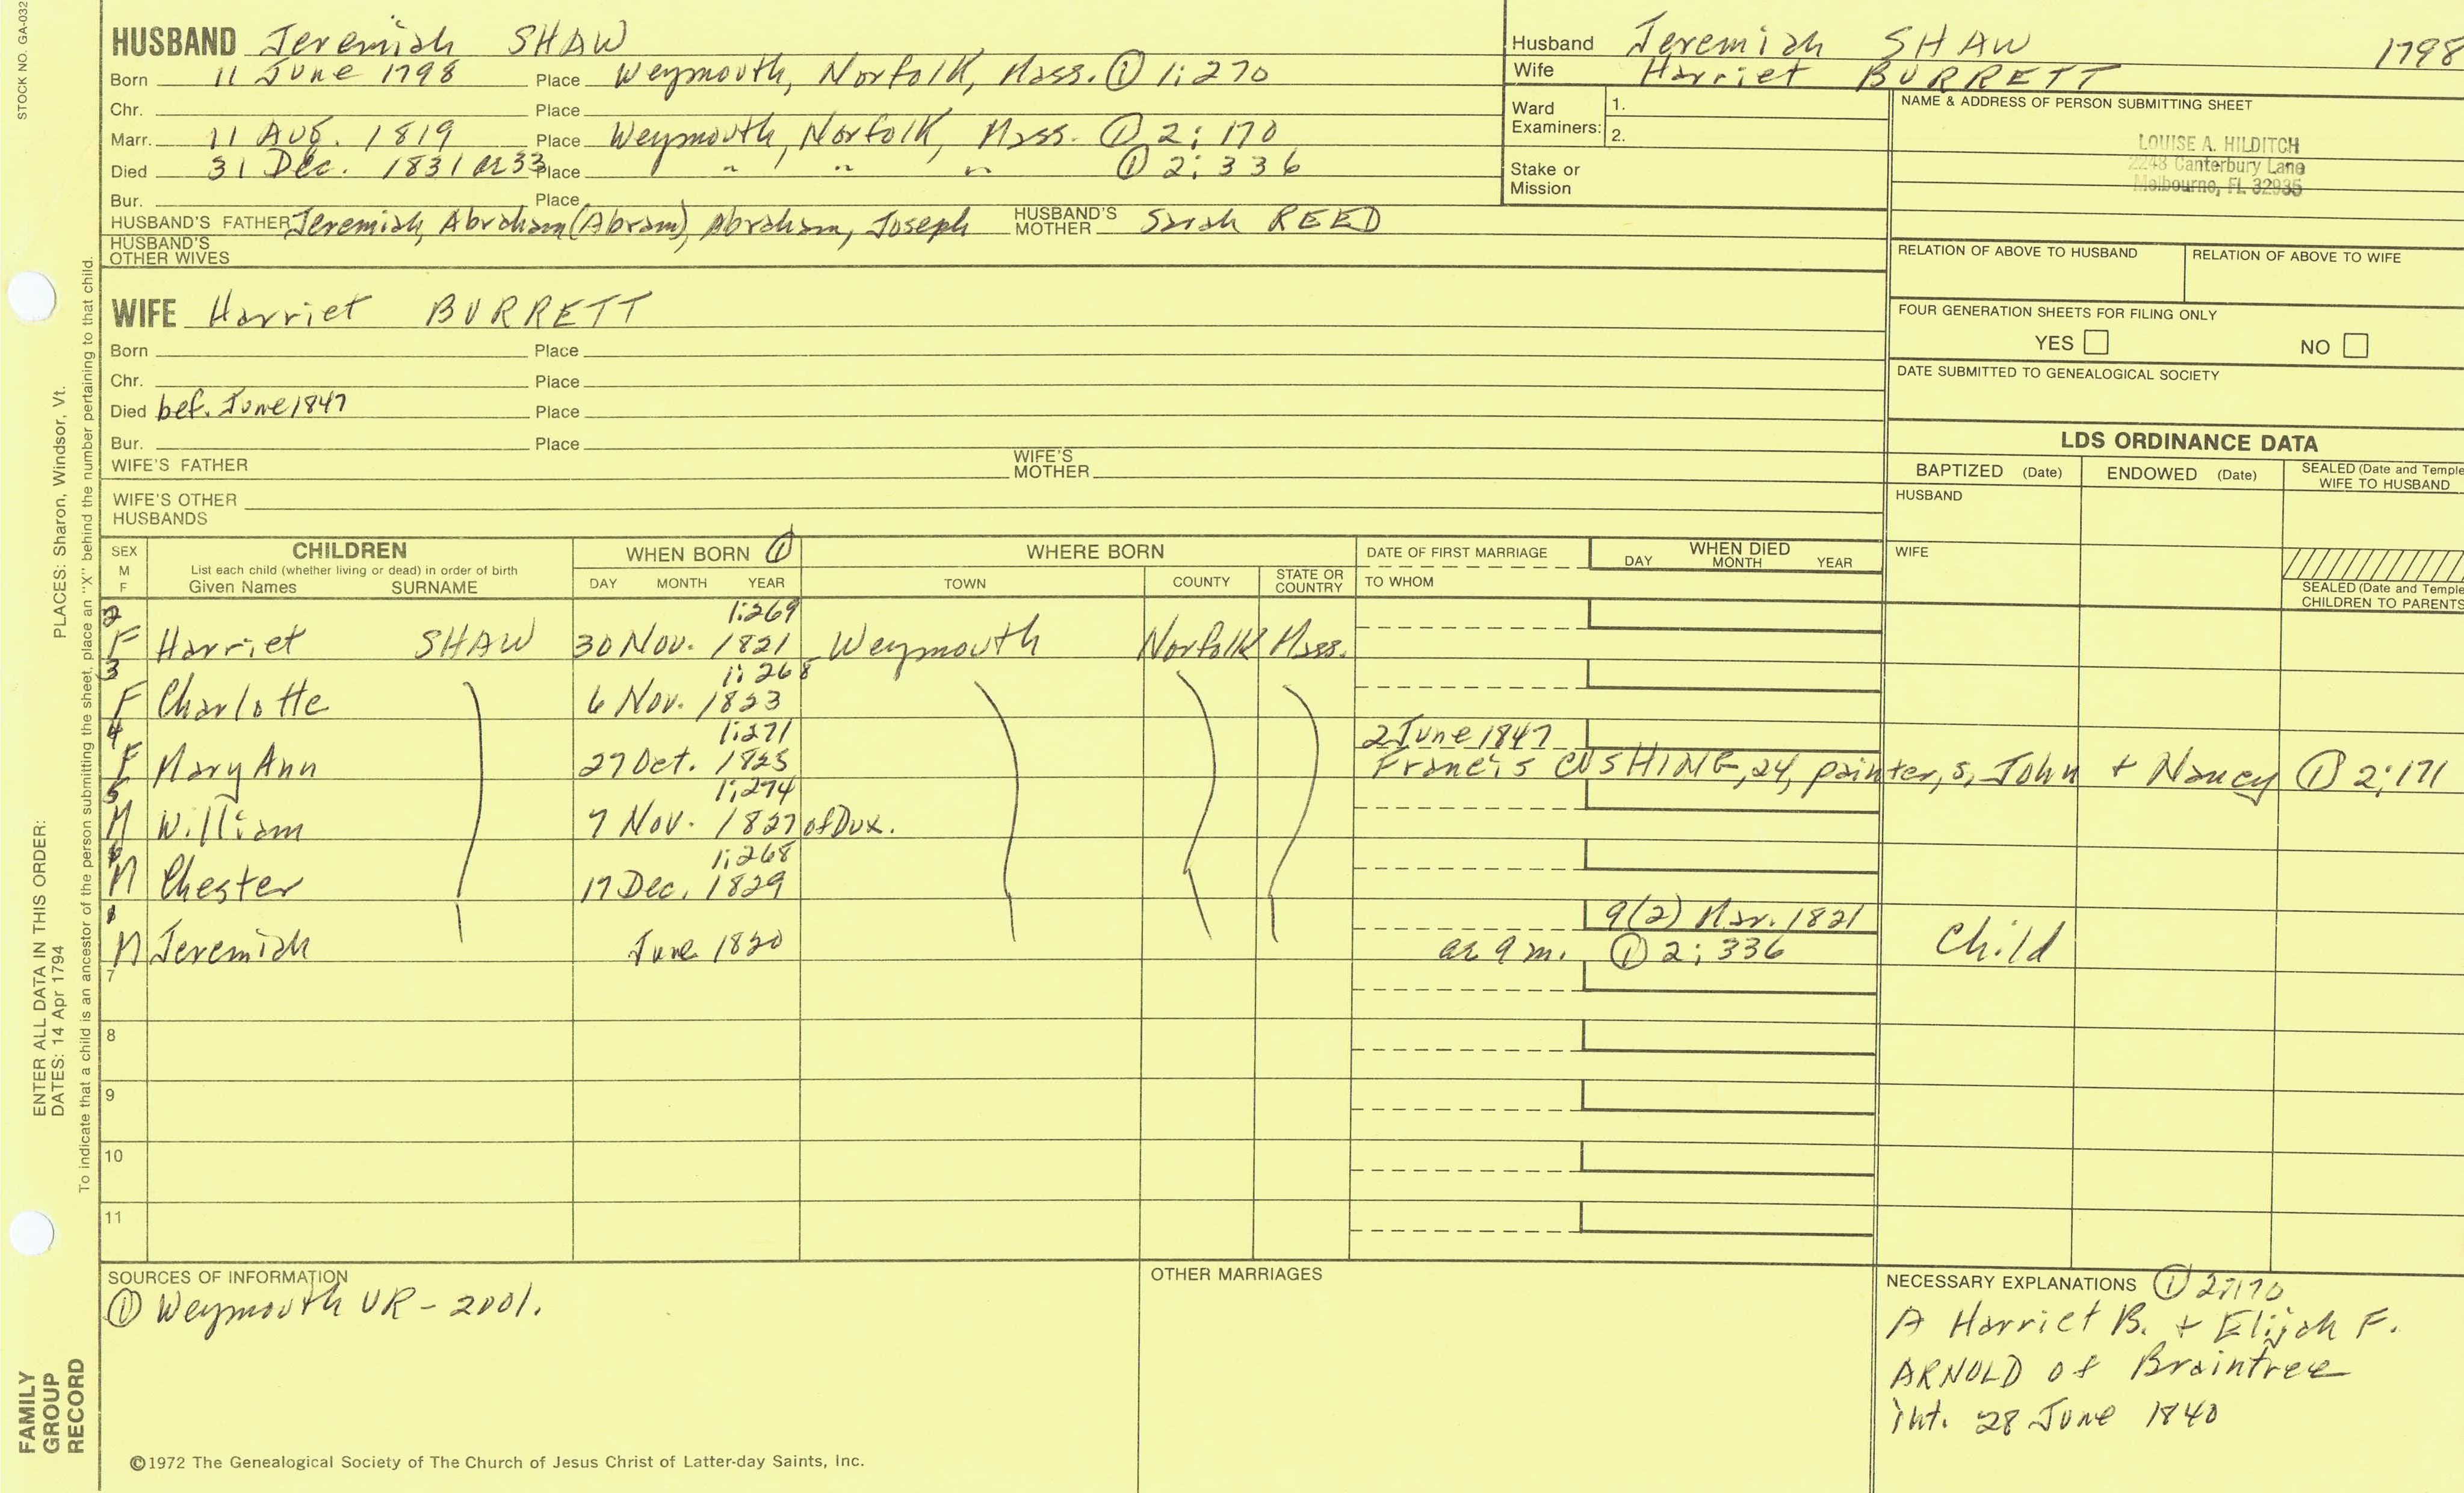 STOCK NO. GA-032
HUSBAND Jeremiah SHAW
Born 11 June 1798 Place Weymouth, Norfolk, Mass. ① 1:270
Chr. Place
Marr. 11 Aug. 1819 Place Weymouth, Norfolk, Mass. ① 2:170
Died 31 Dec. 1831 ae 33 Place " , " , " ① 2:336
Bur. Place
HUSBAND'S FATHER Jeremiah, Abraham (Abram), Abraham, Joseph HUSBAND'S MOTHER Sarah REED
HUSBAND'S OTHER WIVES
Husband Jeremiah SHAW 1798
Wife Harriet BURRETT
Ward Examiners: 1.
2.
Stake or Mission
NAME & ADDRESS OF PERSON SUBMITTING SHEET
LOUISE A. HILDITCH
2248 Canterbury Lane
Melbourne, FL 32935
RELATION OF ABOVE TO HUSBAND RELATION OF ABOVE TO WIFE
FOUR GENERATION SHEETS FOR FILING ONLY
YES NO
DATE SUBMITTED TO GENEALOGICAL SOCIETY
WIFE Harriet BURRETT
Born Place
Chr. Place
Died bef. June 1847 Place
Bur. Place
WIFE'S FATHER WIFE'S MOTHER
WIFE'S OTHER HUSBANDS
LDS ORDINANCE DATA
BAPTIZED (Date) ENDOWED (Date) SEALED (Date and Temple
WIFE TO HUSBAND
HUSBAND
WIFE
SEALED (Date and Temple
CHILDREN TO PARENTS
SEX M F
CHILDREN
List each child (whether living or dead) in order of birth
Given Names SURNAME
WHEN BORN ①
DAY MONTH YEAR
WHERE BORN
TOWN COUNTY STATE OR COUNTRY
DATE OF FIRST MARRIAGE
TO WHOM
WHEN DIED
DAY MONTH YEAR
2 1:269
F Harriet SHAW 30 Nov. 1821 Weymouth Norfolk Mass.
3 1:268
F Charlotte 6 Nov. 1823
4 1:271 2 June 1847
F Mary Ann 27 Oct. 1825 Francis CUSHING, 24, painter, s, John + Nancy ① 2:171
5 1:274
M William 7 Nov. 1827 of Dux.
6 1:268
M Chester 17 Dec. 1829
1 9(2) Mar. 1821
M Jeremiah June 1820 ae 9 m. ① 2:336 Child
7
8
9
10
11
SOURCES OF INFORMATION
① Weymouth VR - 2001.
OTHER MARRIAGES
NECESSARY EXPLANATIONS ① 2:170
A Harriet B. + Elijah F.
ARNOLD of Braintree
int. 28 June 1840
©1972 The Genealogical Society of The Church of Jesus Christ of Latter-day Saints, Inc.
FAMILY
GROUP
RECORD
ENTER ALL DATA IN THIS ORDER:
DATES: 14 Apr 1794
PLACES: Sharon, Windsor, Vt.
To indicate that a child is an ancestor of the person submitting the sheet, place an "X" behind the number pertaining to that child.